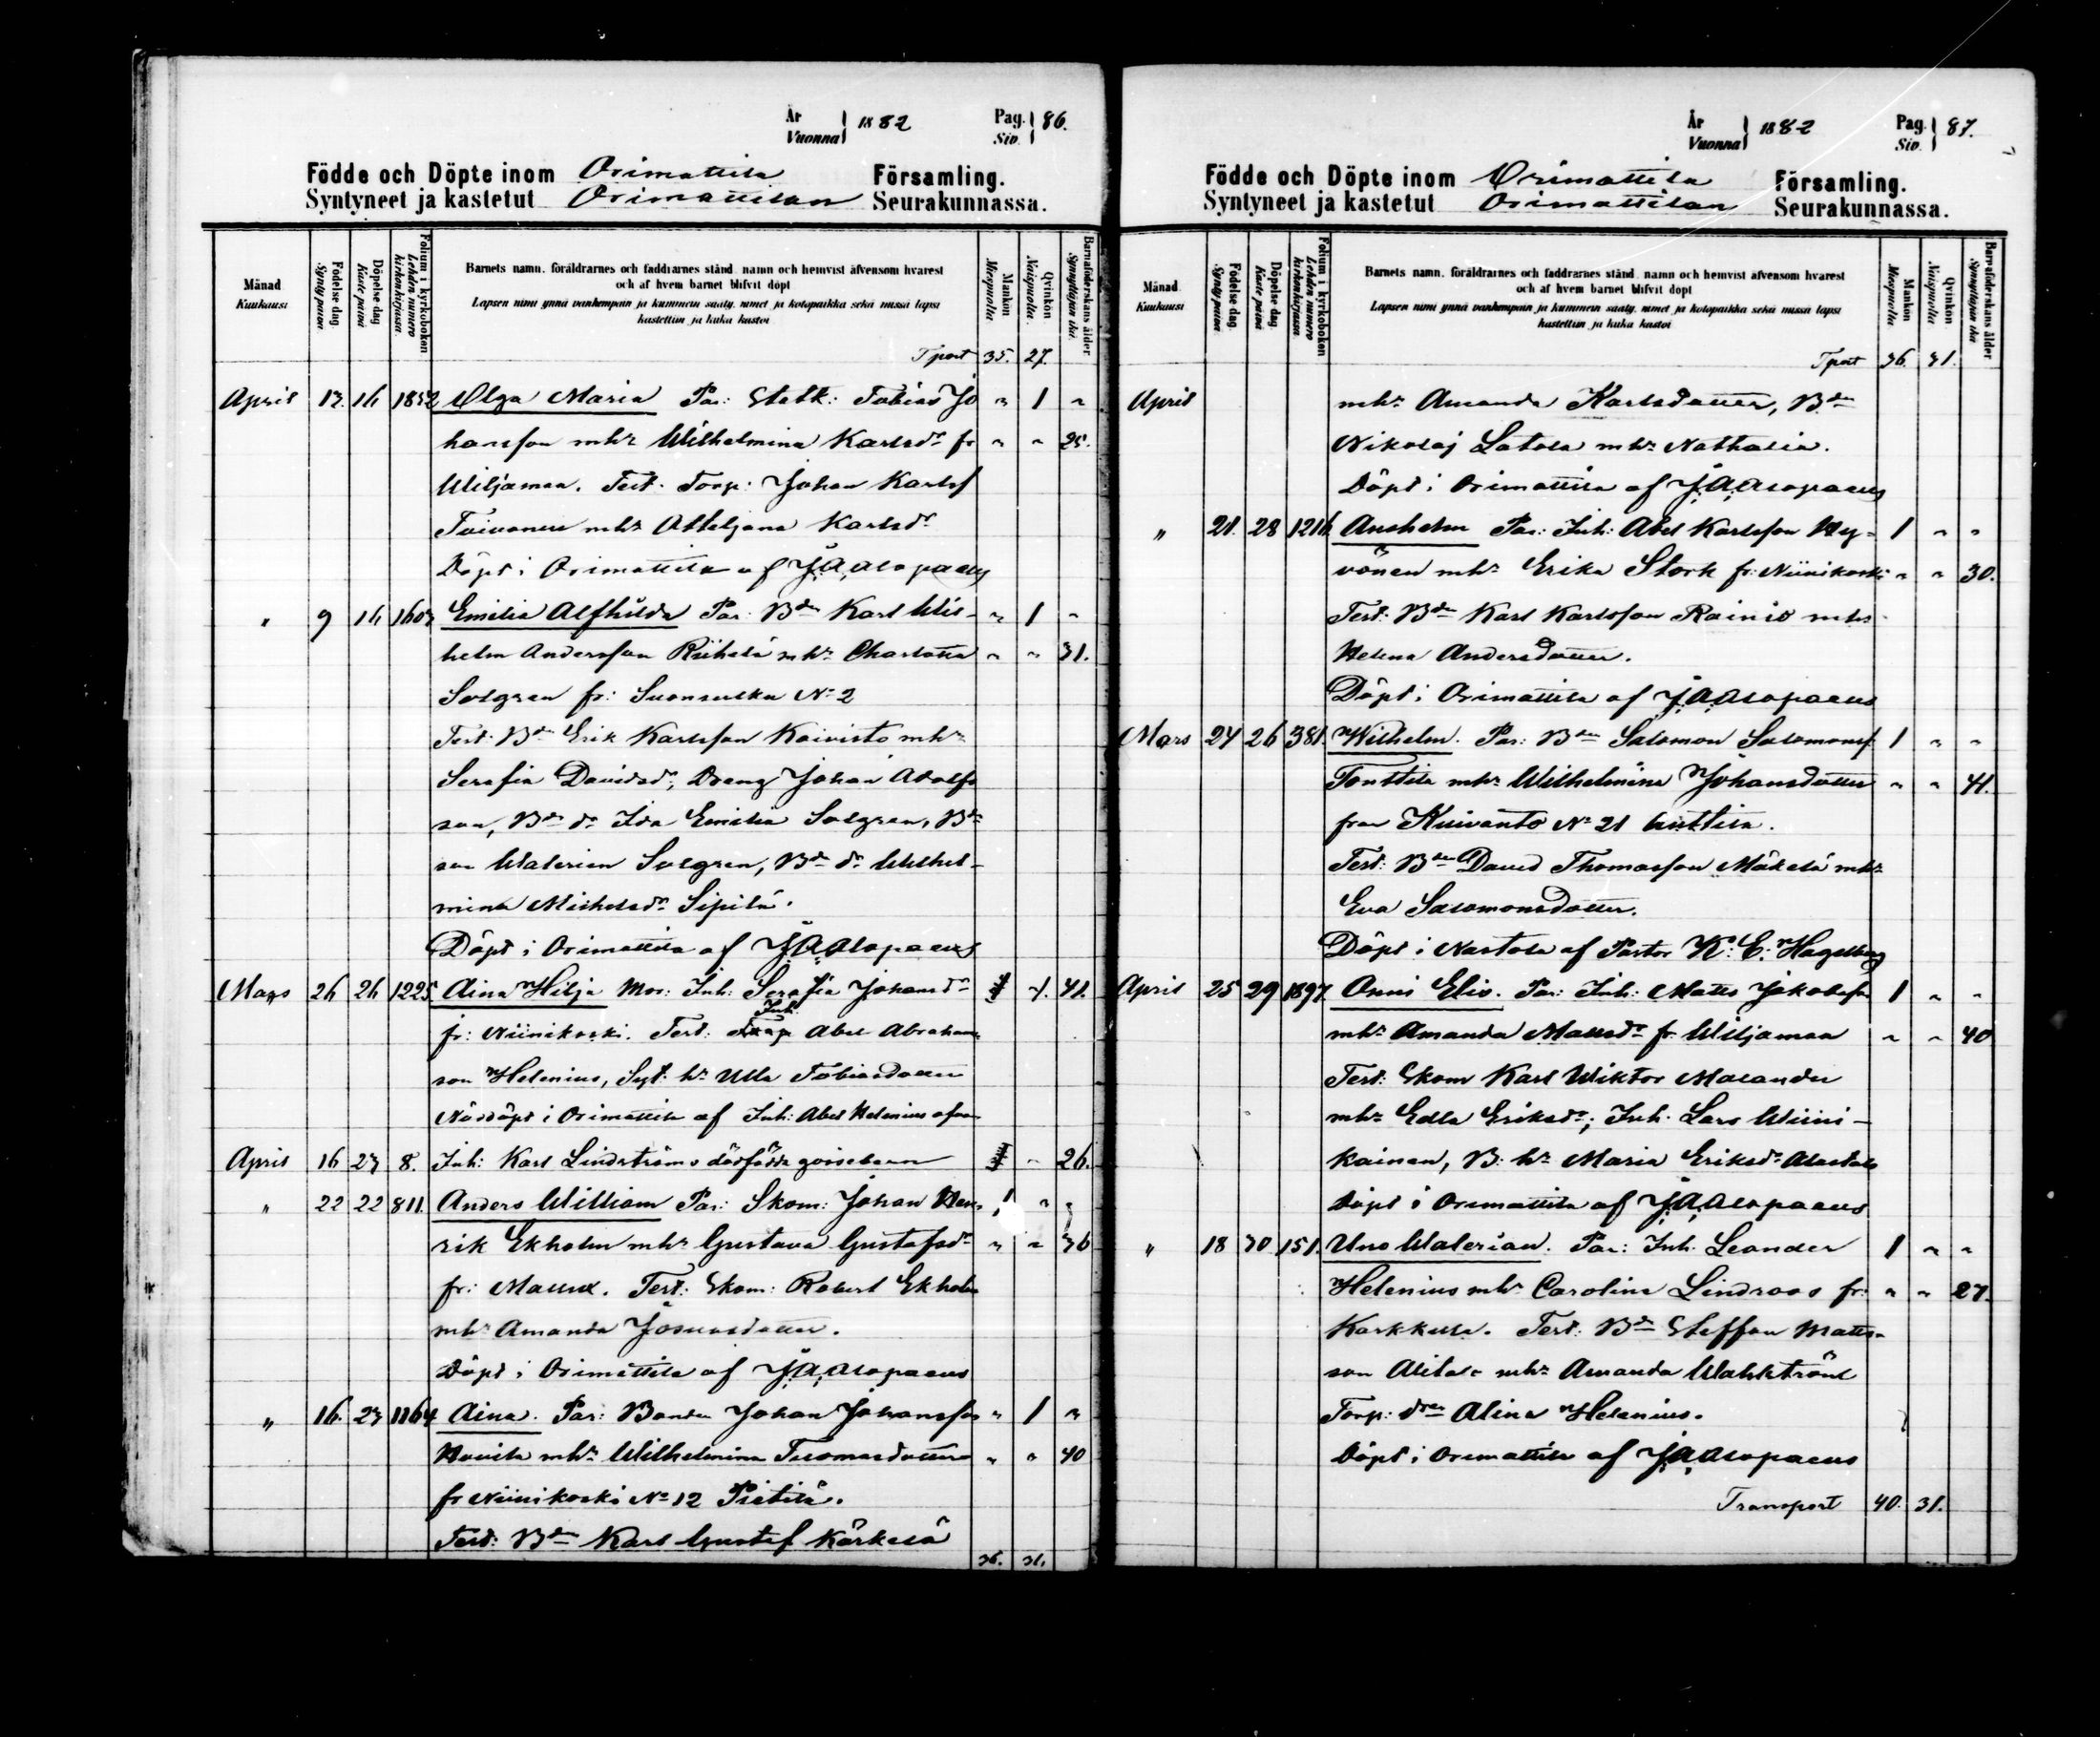 År
Vuonna 1882
Pag.
Siv. 86.
Födde och Döpte inom Orimattila Församling.
Syntyneet ja kastetut Orimattilan Seurakunnassa.
Månad
Kuukausi
Födelse dag.
Synty päivä
Döpelse dag
Kaste päivä
Folium i kyrkoboken
Lehden numero kirkonkirjassa.
Barnets namn, föräldrarnes och faddrarnes stånd, namn och hemvist äfvensom hvarest
och af hvem barnet blifvit döpt
Lapsen nimi ynnä vanhempain ja kummein sääty, nimet ja kotopaikka sekä missä lapsi
kastettiin ja kuka kastoi
Mankön
Miespuolia
Qvinkön
Naispuolia
Barnaföderskans ålder
Synnyttäjän ikä.
Tport 35. 27.
April 13. 16 1852 Olga Maria Par: Statk: Tobias Jo „ 1 „
hansson mhr Wilhelmina Karlsdr fr „ „ 25.
Wiljamaa. Test. Torp: Johan Karlsf
Toivonen mhr Karlsdr
Döpt i Orimattila af J,A,Alopaeus
„ 9 16 1603 Emilia Alfhilda Par: Bdn Karl Wil- „ 1 „
helm Andersson Riihelä mhr Charlotta „ „ 31.
Solgren fr: N:o 2
Test: Bdn Erik Karlsson Koivisto mhr
Serafia Davidsdr, Dreng Johan Adolfs
son, Bdn dr Ida Emilia Solgren, Bdn
son Walerian Solgren, Bdn dr Wilhel-
mina Michelsdr Sipilä.
Döpt i Orimattila af J,A,Alopaeus
Mars 26 26 1225 Aina Hilja Mor: Inh: Serafia Johansdr 1. 41.
Inh.
fr: Niinikoski. Test: Abel Abraham
son Helenius, hr Ulla Tobiasdotter
Nöddöpt i Orimattila af Inh: Abel Helenius
April 16 23 8. Inh: Karl Lindströms dödfödda gossebarn „ 26.
„ 22 22 811. Anders William Par: Skom: Johan Hen- 1 „ „
rik Ekholm mhr Gustava Gustafsdr „ „ 36
fr: Mallusj. Test: Skom: Robert Ekholm
mhr Amanda Josuasdotter.
Döpt i Orimattila af J,A,Alopaeus
„ 16. 23 1164 Aina. Par: Bonden Johan Johansson „ 1 „
Hovila mhr Wilhelmina Tuomasdotter „ „ 40
fr Niinikoski N:o 12 Pietilä.
Test: Bdn Karl Gustaf Kärkelä
36. 31.
År
Vuonna 1882
Pag.
Siv. 87.
Födde och Döpte inom Orimattila Församling.
Syntyneet ja kastetut Orimattilan Seurakunnassa.
Månad
Kuukausi
Födelse dag.
Synty päivä
Döpelse dag
Kaste päivä
Folium i kyrkoboken
Lehden numero kirkonkirjassa.
Barnets namn, föräldrarnes och faddrarnes stånd, namn och hemvist äfvensom hvarest
och af hvem barnet blifvit döpt
Lapsen nimi ynnä vanhempain ja kummein sääty, nimet ja kotopaikka sekä missä lapsi
kastettiin ja kuka kastoi
Mankön
Miespuolia
Qvinkön
Naispuolia
Barnaföderskans ålder
Synnyttäjän ikä
Tport 36. 31.
April mhr Amanda Karlsdotter, Bdn
Nikolaj Latola mhr Nathalia.
Döpt i Orimattila af J,A,Alopaeus
„ 21. 28 1216. Anshelm Par: Inh: Abel Karlsson Hy- 1 „ „
vönen mhr Erika Stork fr: Niinikoski „ „ 30.
Test: Bdn Karl Karlsson Rainio mhr
Helena Andersdotter.
Döpt i Orimattila af J,A,Alopaeus
Mars 24 26 381. Wilhelm. Par: Bdn Salomon Salomonsf 1 „ „
Tonttila mhr Wilhelmina Johansdotter „ „ 41.
från Kuivanto N:o 21 Anttila.
Test: Bdn David Thomasson Mäkelä mhr
Eva Salomonsdotter.
Döpt i Nastola af Pastor K: E: Hagelberg
April 25 29 1897. Onni Elis. Par: Inh: Matts Jakobsson 1 „ „
mhr Amanda Mattsdr fr. Wiljamaa „ „ 40
Test: Skom Karl Wiktor Malander
mhr Edla Eriksdr; Inh: Lars Wiini-
kainen, B: hr Maria Eriksdr Alastalo
Döpt i Orimattila af J,A,Alopaeus
„ 18 30 151. Uno Walerian. Par: Inh: Leander 1 „ „
Helenius mhr Carolina Lindroos fr: „ „ 27.
Karkkula. Test: Bdn Staffan Matts-
son Alitalo mhr Amanda Wahlström
Torp: drn Alina Helenius.
Döpt i Orimattila af J,A,Alopaeus
Transport 40. 31.